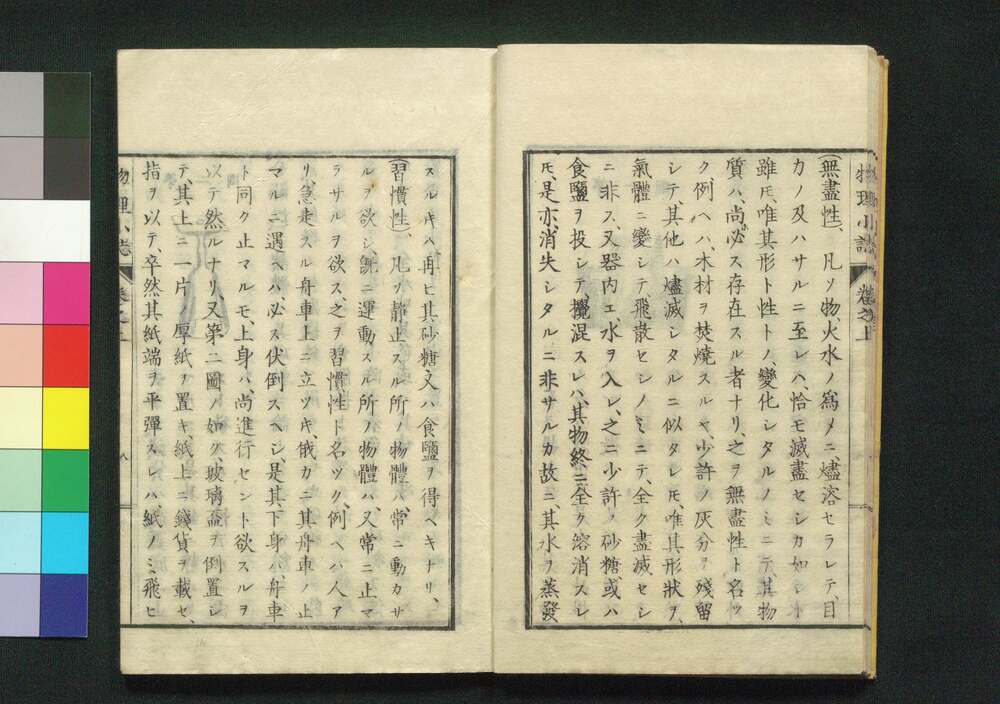 物理小誌 卷之上
(無盡性)、凡ソ物火水ノ爲メニ、燼溶セラレテ、目
カノ及ハサルニ至レハ、恰モ滅盡セシカ如シト
雖𪜈、唯其形ト性トノ、變化シタルノミニテ其物
質ハ、尚必ス存在スル者ナリ、之ヲ無盡性ト名ツ
ク例ヘハ、木材ヲ焚燒スルヤ、少許ノ灰分ヲ殘留
シテ其他ハ燼滅シタルニ似タレ𪜈、唯其形狀ヲ、
氣體ニ變シテ飛散セシノミニテ、全ク盡滅セシ
ニ非ス、又器內エ、水ヲ入レ、之ニ少許ノ砂糖或ハ
食鹽ヲ投シテ攪混スレハ、其物終ニ全ク溶消スレ
𪜈、是亦消失シタルニ非サルカ故ニ、其水ヲ蒸發
スルキハ、再ヒ其砂糖又ハ食鹽ヲ得ヘキナリ、
(習慣性)、凡ソ靜止スル所ノ物體ハ、常ニ動カサ
ルヲ欲シ既ニ運動スル所ノ物體ハ、又常ニ止マ
ラサルヲ欲ス、之ヲ習慣性ト名ツク、例ヘハ人ア
リ急走スル舟車上ニ立ツキ、俄カニ其舟車ノ止
マルニ遇ヘハ、必ス伏倒スヘシ、是其下身ハ、舟車
ト同ク止マルモ、上身ハ、尚進行セント欲スルヲ
以テ然ルナリ、又第二圖ノ如ク、玻璃盃ヲ倒置シ
テ、其上ニ一片ノ厚紙ヲ置キ、紙上ニ錢貨ヲ載セ、
指ヲ以テ、卒然其紙端ヲ平彈スレハ、紙ノミ飛ヒ
物理小誌 卷之上 八